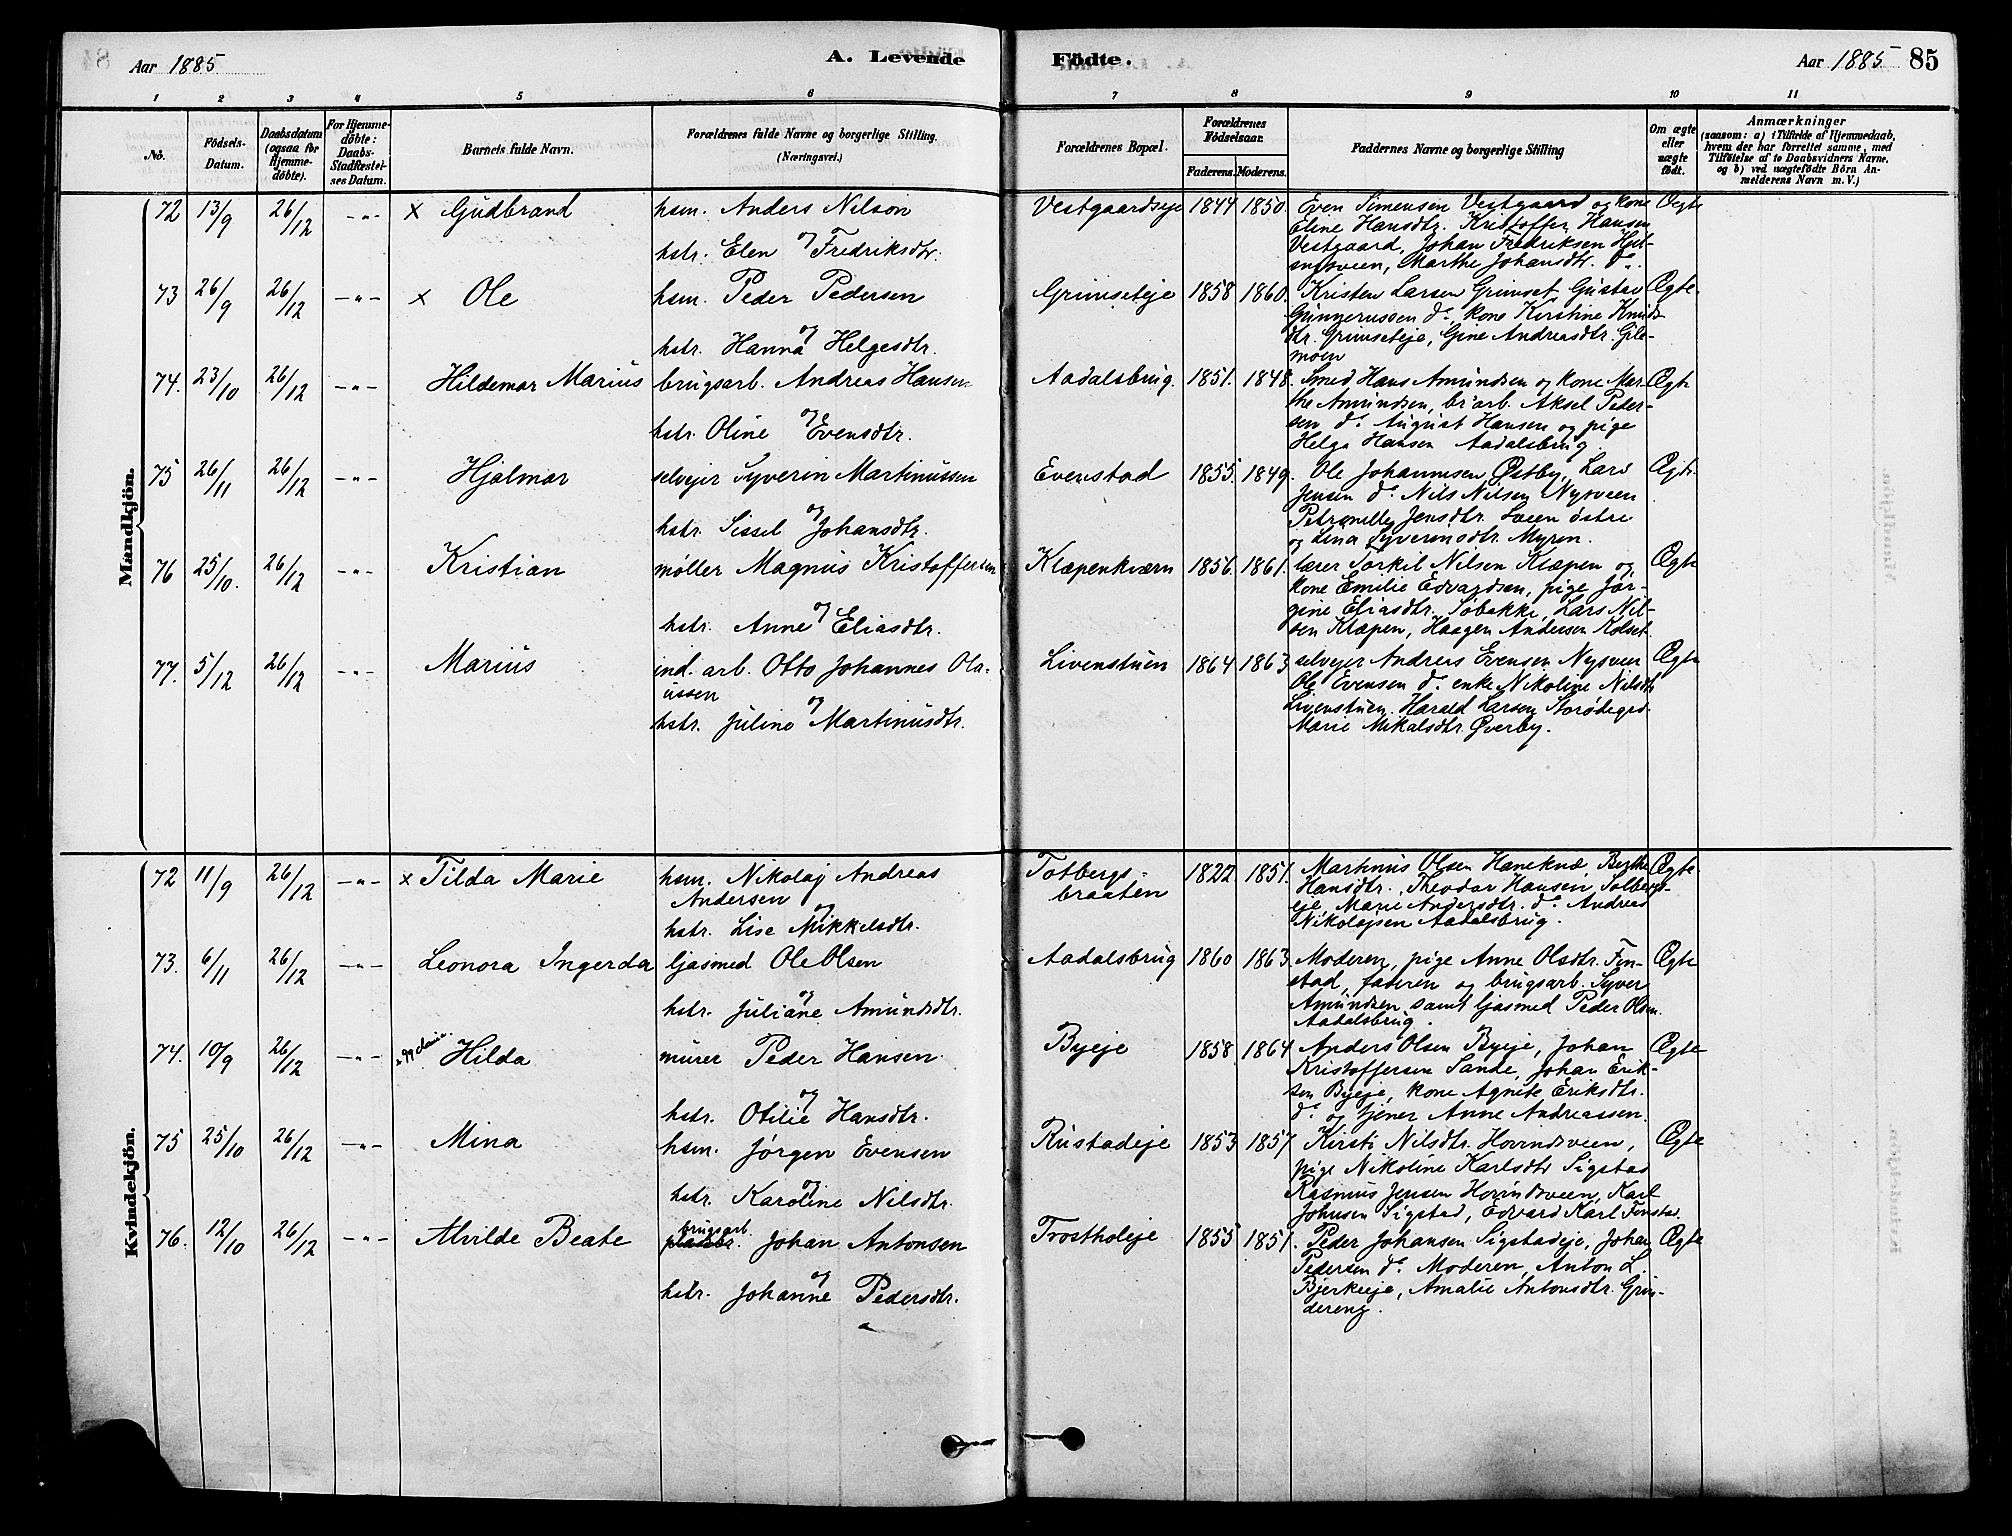 Aar 1885.
A. Levende
Födte.
Aar 1885
85
1 2 3 4 5 6 7 8 9 10 11
No.
Födsels-
Datum.
Daabsdatum
(ogsaa for
Hjemme-
döbte).
For Hjemme-
döbte:
Daabs-
Stadfæstel-
ses Datum.
Barnets fulde Navn.
Forældrenes fulde Navne og borgerlige Stilling.
(Næringsvei.)
Forældrenes Bopæl.
Forældrenes
Födselsaar.
Faderens. Moderens.
Faddernes Navne og borgerlige Stilling
Om ægte
eller
uægte
født.
Anmærkninger
(saasom: a) i Tilfælde af Hjemmedaab,
hvem der har forrettet samme, med
Tilføielse af to Daabsvidners Navne.
og b) ved uægtefødte Börn An-
melderens Navn m. V.)
Mandkjön.
72 13/9 26/12 -"- x Gudbrand
hsm. Anders Nilson
og
hstr. Elen Fredriksdtr.
Vestgaardseje 1844 1850.
Even Simensen Vestgaard og kone
Eline Hansdtr. Kristoffer Hansen
Vestgaard, Johan Fredriksen
Marthe Johansdtr. do.
Ægte
73 26/9 26/12 -"- x Ole
hsm. Peder Pedersen
og
hstr. Hanna Helgesdtr.
Grimseteje 1858 1860.
Kristen Larsen Grimset, Gustav
Gunnerussen do, kone Kirstine Knuds-
dtr. Grimseteje, Gine Andreasdtr. Gile-
moen
Ægte.
74. 23/10 26/12 -"- Hildemar Marius
brugsarb. Andreas Hansen
og
hstr. Oline Evensdtr.
Aadalsbrug. 1851. 1848.
Smed Hans Amundsen og kone Mar-
the Amundsen, br.arb. Aksel Peder-
sen do. August Hansen og pige
Helga Hansen Aadalsbrug
Ægte
75 26/11 26/12 -"- Hjalmar
selvejer Syverin Martinussen
og
hstr. Sissel Johansdtr.
Evenstad 1855. 1849.
Ole Johannesen Østby, Lars
Jensen do. Nils Nilsen Nysveen
Petronelle Jensdtr. Sveen østre
og Lina Syverinsdtr. Myren.
Ægte.
76 25/10. 26/12 -"- Kristian
møller Magnus Kristoffersen
og
hstr. Anne Eliasdtr.
Klæpenkværn 1856. 1861.
lærer Torkil Nilsen Klæpen og
kone Emilie Edvardsen, pige Jør-
gine Eliasdtr. Søbakke, Lars Nil-
sen Klæpen, Haagen Andersen Kolset
Ægte
77. 5/12 26/12 -"- Marius
ind. arb. Otto Johannes Ola-
ussen
og
hstr. Juline Martinusdtr.
Livenstuen 1864 1863
selvejer Andreas Evensen Nysveen
Ole Evensen do. enke Nikoline Nilsdtr
Livenstuen. Harald Larsen
Marie Mikalsdtr. Øverby.
Ægte
Kvindekjön.
72 11/9 26/12 -"- x Tilda Marie
hsm. Nikolaj Andreas
Andersen
og
hstr. Lise Mikkelsdtr.
Totbergs-
braaten 1822 1851.
Martinus Olsen Haneknæ, Berthe
Hansdtr., Theodor Hansen, Solbergs-
eje, Marie Andersdtr. do. Andreas
Nikolajsen Aadalsbrug.
Ægte.
73. 6/11 26/12 -"- Leonora Ingerda
ljasmed Ole Olsen
og
hstr. Juliane Amundsdtr.
Aadalsbrug 1860 1863.
Moderen, pige Anne Olsdtr. Fin-
stad, faderen og brugsarb. Syver
Amundsen samt ljasmed Peder Olsen.
Aadalsbrug.
Ægte
74. 10/9 26/12 -"- Hilda
murer Peder Hansen
og
hstr. Otilie Hansdtr.
Byeje 1858. 1864
Anders Olsen Byeje, Johan
Kristoffersen Sande, Johan Erik-
sen Byeje, kone Agnete Eriksdtr.
do. og tjener Anne Andreassen.
Ægte
75 25/10 26/12 -"- Mina
hsm. Jørgen Evensen
og
hstr. Karoline Nilsdtr.
Rustadeje 1853 1857
Kirsti Nilsdtr. Hovindsveen,
pige Nikoline Karlsdtr Sigstad
Rasmus Jensen Hovindsveen, Karl
Johnsen Sigstad, Edvard Karl Finstad.
Ægte
76. 12/10 26/12 -"- Alvilde Beate
brugsarb
Johan Antonsen
og
hstr. Johanne Pedersdtr.
Trostholeje 1855 1851.
Peder Johansen Sigstadeje, Johan
Pedersen do. Moderen, Anton L.
Bjerkeeje, Amalie Antonsdtr. Grin-
dereng.
Ægte